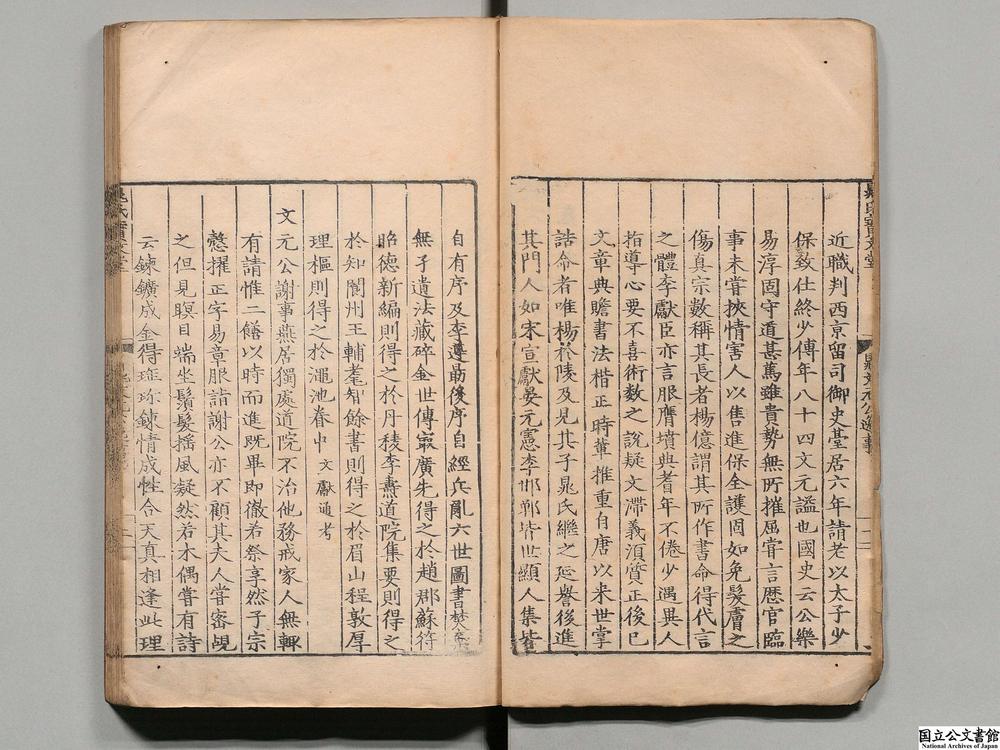 近職判西京留司御史臺居六年請老以太子少
保致仕終少傅年八十四文元謚也國史云公樂
易淳固守道甚篤雖貴勢無所摧屈嘗言歷官臨
事未嘗挾情害人以售進保全護固如免髮膚之
傷真宗數稱其長者楊億謂其所作書命得代言
之體李獻臣亦言服膺墳典耆年不倦少遇異人
指導心要不喜術數之說疑文滯義須質正後已
文章典贍書法楷正時輩推重自唐以來世掌
誥命者唯楊於陵及見其子晁氏繼之延譽後進
其門人如宋宣獻晏元憲李邯鄲皆世顯人集皆
自有序及李遵勗後序自經兵亂六世圖書焚
無孑遺法藏碎金世傳寂廣先得之於趙郡蘇符
昭德新編則得之於丹稜李燾道院集要則得之
於知閬州王輔耄智餘書則得之於眉山程敦厚
理樞則得之於澠池眷中 文獻通考
文元公謝事燕居獨處道院不治他務戒家人無輙
有請惟二饍以時而進既畢即徹若祭享然子宗
慤擢正字易章服詣謝公亦不顧其夫人嘗密覘
之但見瞑目端坐鬚髮揺風凝然若木偶嘗有詩
云鍊鑛成金得珤珎鍊情成性合天真相逢此理
晁氏寶文堂
晁文元公遺事
国立公文書館
National Archives of Japan